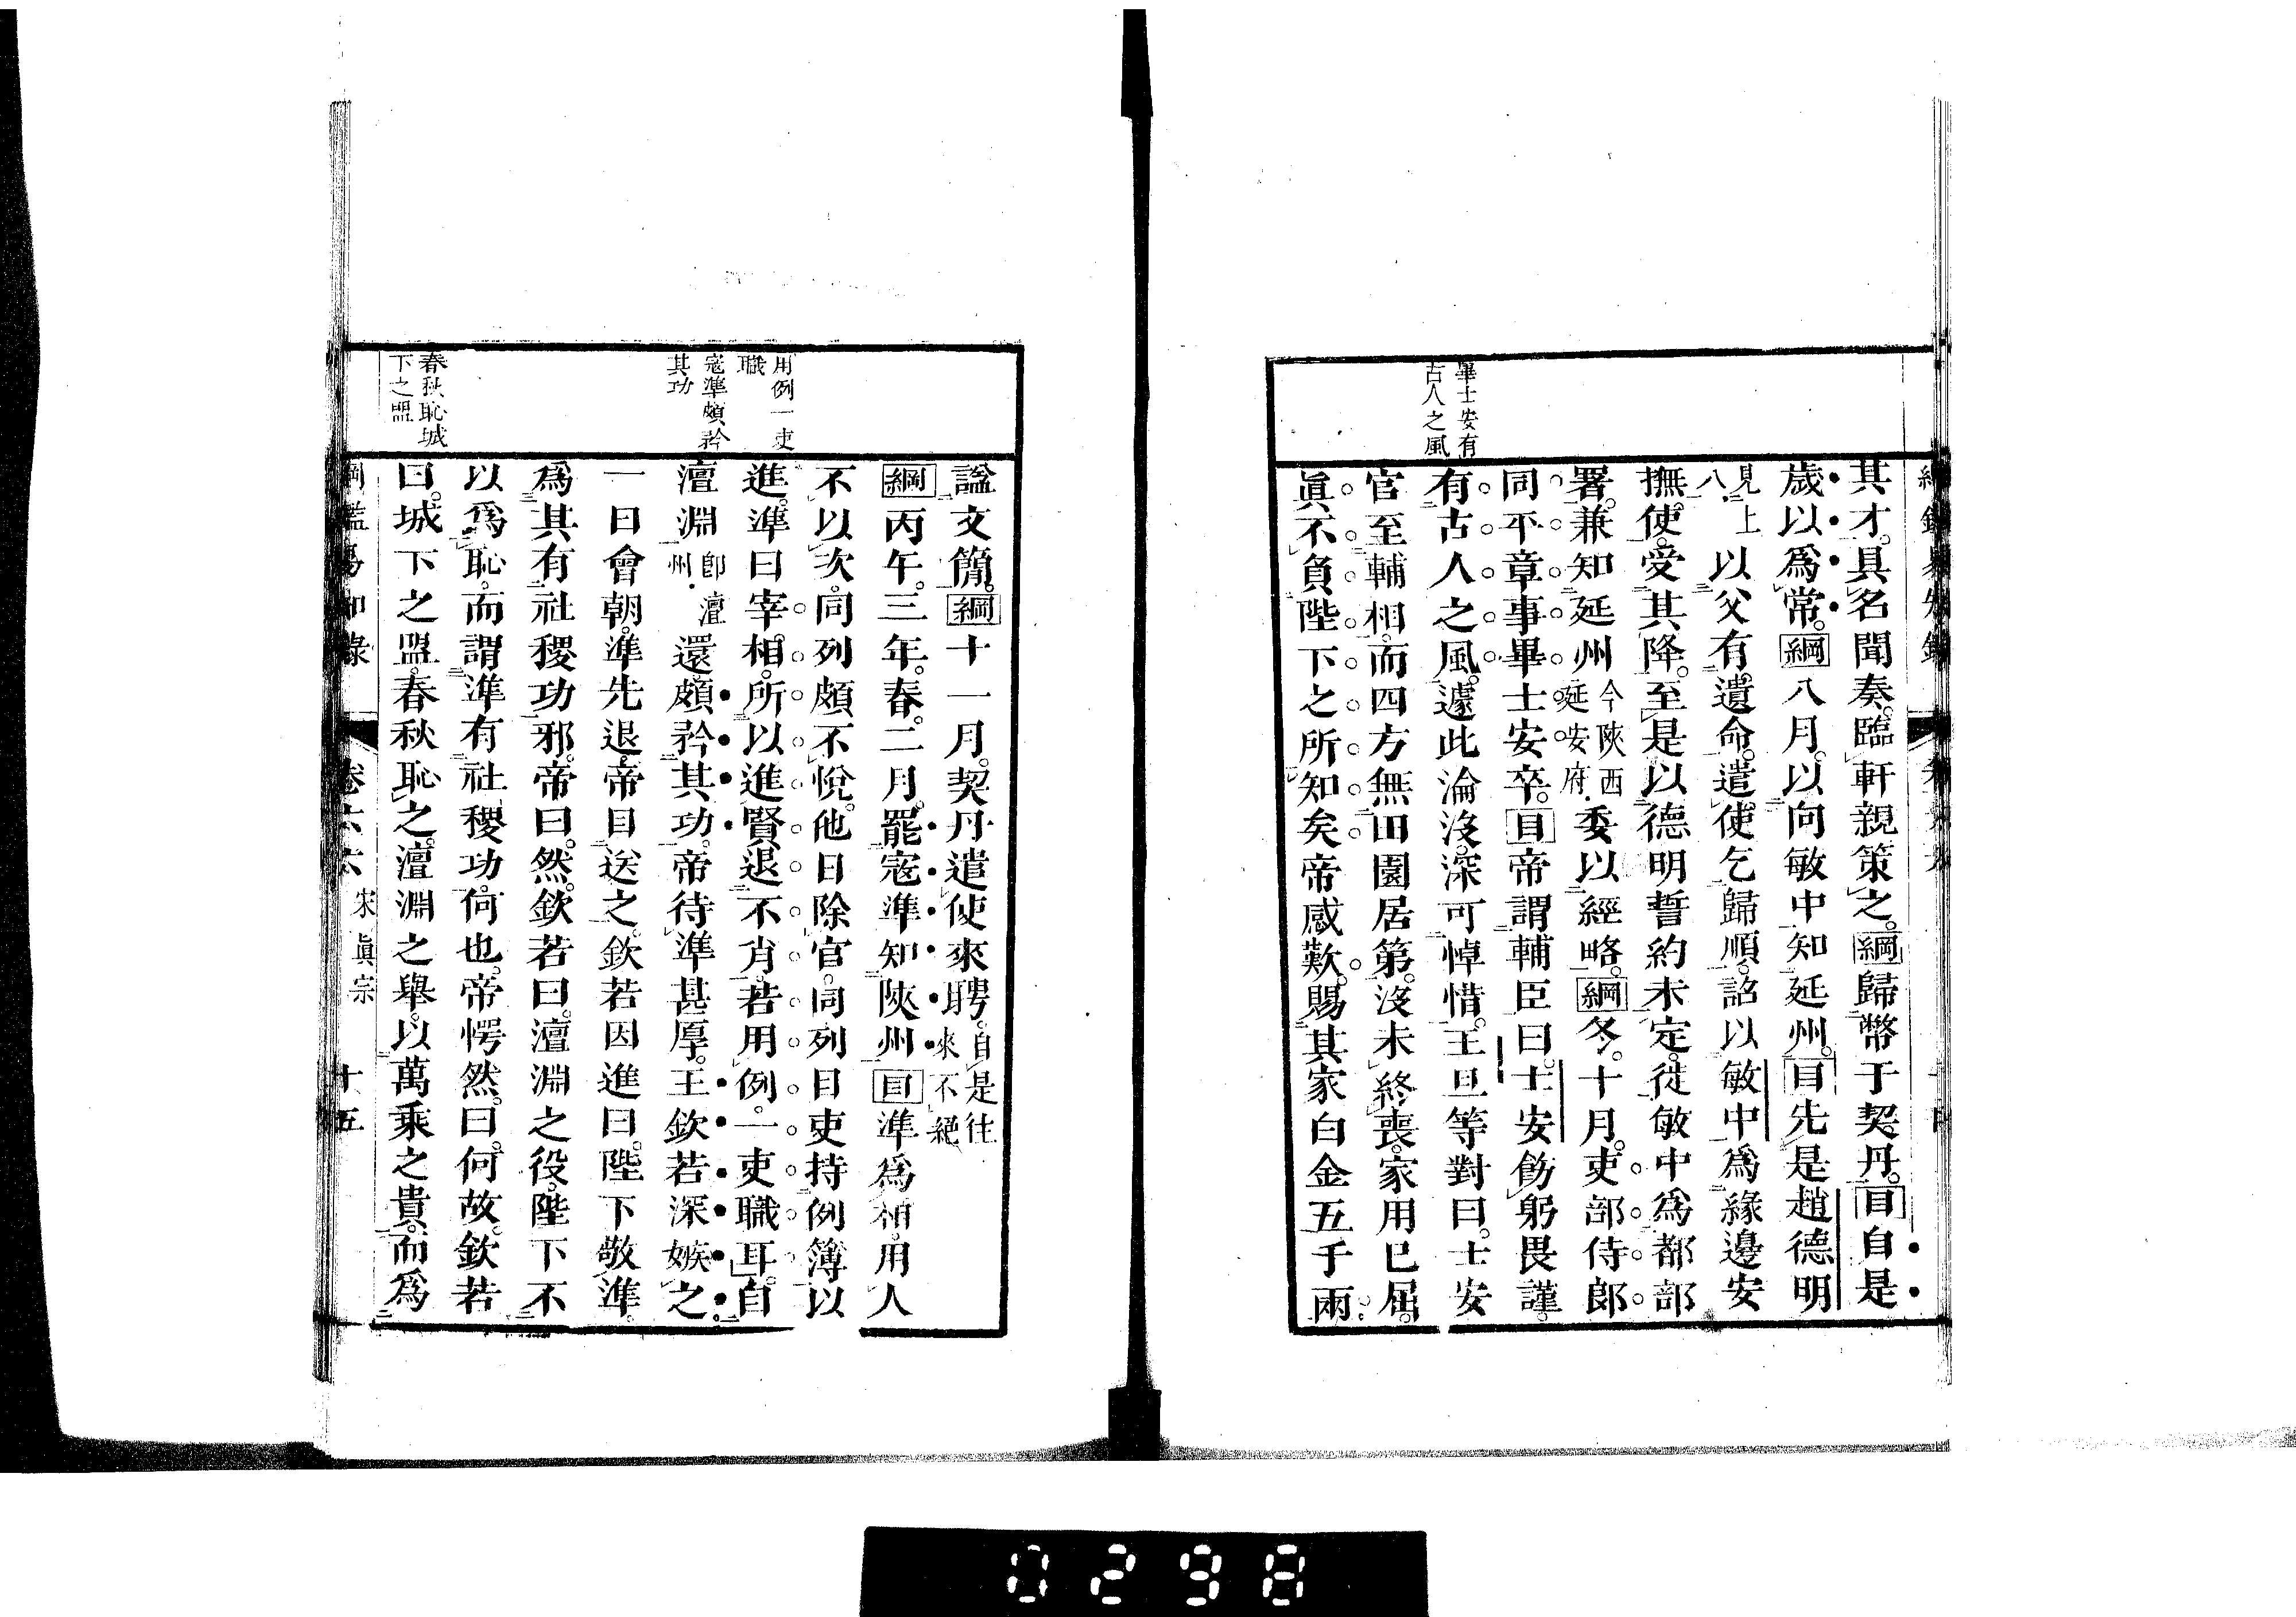 畢士安有
古人之風
其才具名聞奏臨軒親策之。綱歸幣于契丹。目自是
歲以爲常。綱八月。以向敏中知延州。目先是趙德明
見上
八
以父有遺命。遣使乞歸順。詔以敏中爲緣邊安
撫使。受其降。至是以德明誓約未定。徙敏中爲都部
署。兼知延州
今陝西
延安府
委以經略。綱冬。十月。吏部侍郎
同平章事畢士安卒。目帝謂輔臣曰。士安飭躬畏謹。
有古人之風。遽此淪沒。深可悼惜。王旦等對曰。士安
官至輔相。而四方無田園居第。沒未終喪。家用已屈。
眞不負陛下之所知矣。帝感歎。賜其家白金五千兩
用例一吏
職
寇準頗矜
其功
春秋恥城
下之盟
謚文簡。綱十一月。契丹遣使來聘。
自是往
來不絕
綱丙午。三年。春。二月。罷寇準知陝州。目準爲相。用人
不以次。同列頗不悅。他日除官。同列目吏持例簿以
進。準曰。宰相。所以進賢退不肖。若用例。一吏職耳。自
澶淵
卽澶
州
還。頗矜其功。帝待準甚厚。王欽若深嫉之。
一日會朝。準先退。帝目送之。欽若因進曰。陛下敬準。
爲其有社稷功邪。帝曰。然。欽若曰。澶淵之役。陛下不
以爲恥。而謂準有社稷功。何也。帝愕然。曰。何故。欽若
曰。城下之盟。春秋恥之。澶淵之舉。以萬乘之貴。而爲
綱鑑易知錄 卷六六 宋眞宗 十五
0298